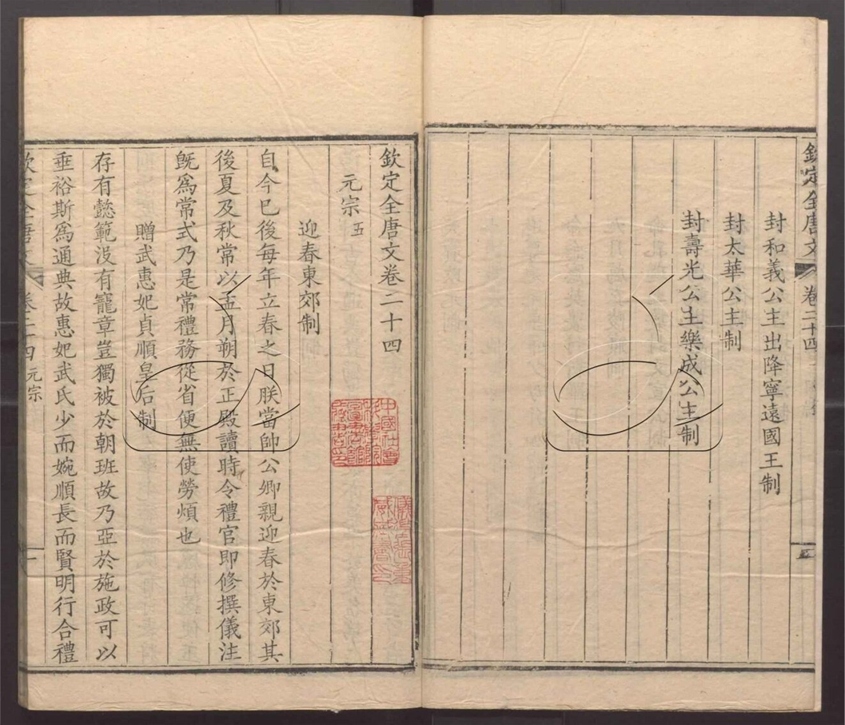 欽定全唐文 卷二十四
封和義公主出降寧遠國王制
封太華公主制
封壽光公主樂成公主制
欽定全唐文卷二十四
元宗五
迎春東郊制
自今已後每年立春之日朕當帥公卿親迎春於東郊其
後夏及秋常以孟月朔於正殿讀時令禮官即修撰儀注
既爲常式乃是常禮務從省便無使勞煩也
贈武惠妃貞順皇后制
存有懿範沒有寵章豈獨被於朝班故乃亞於施政可以
垂裕斯爲通典故惠妃武氏少而婉順長而賢明行合禮
欽定全唐文 卷二十四 元宗